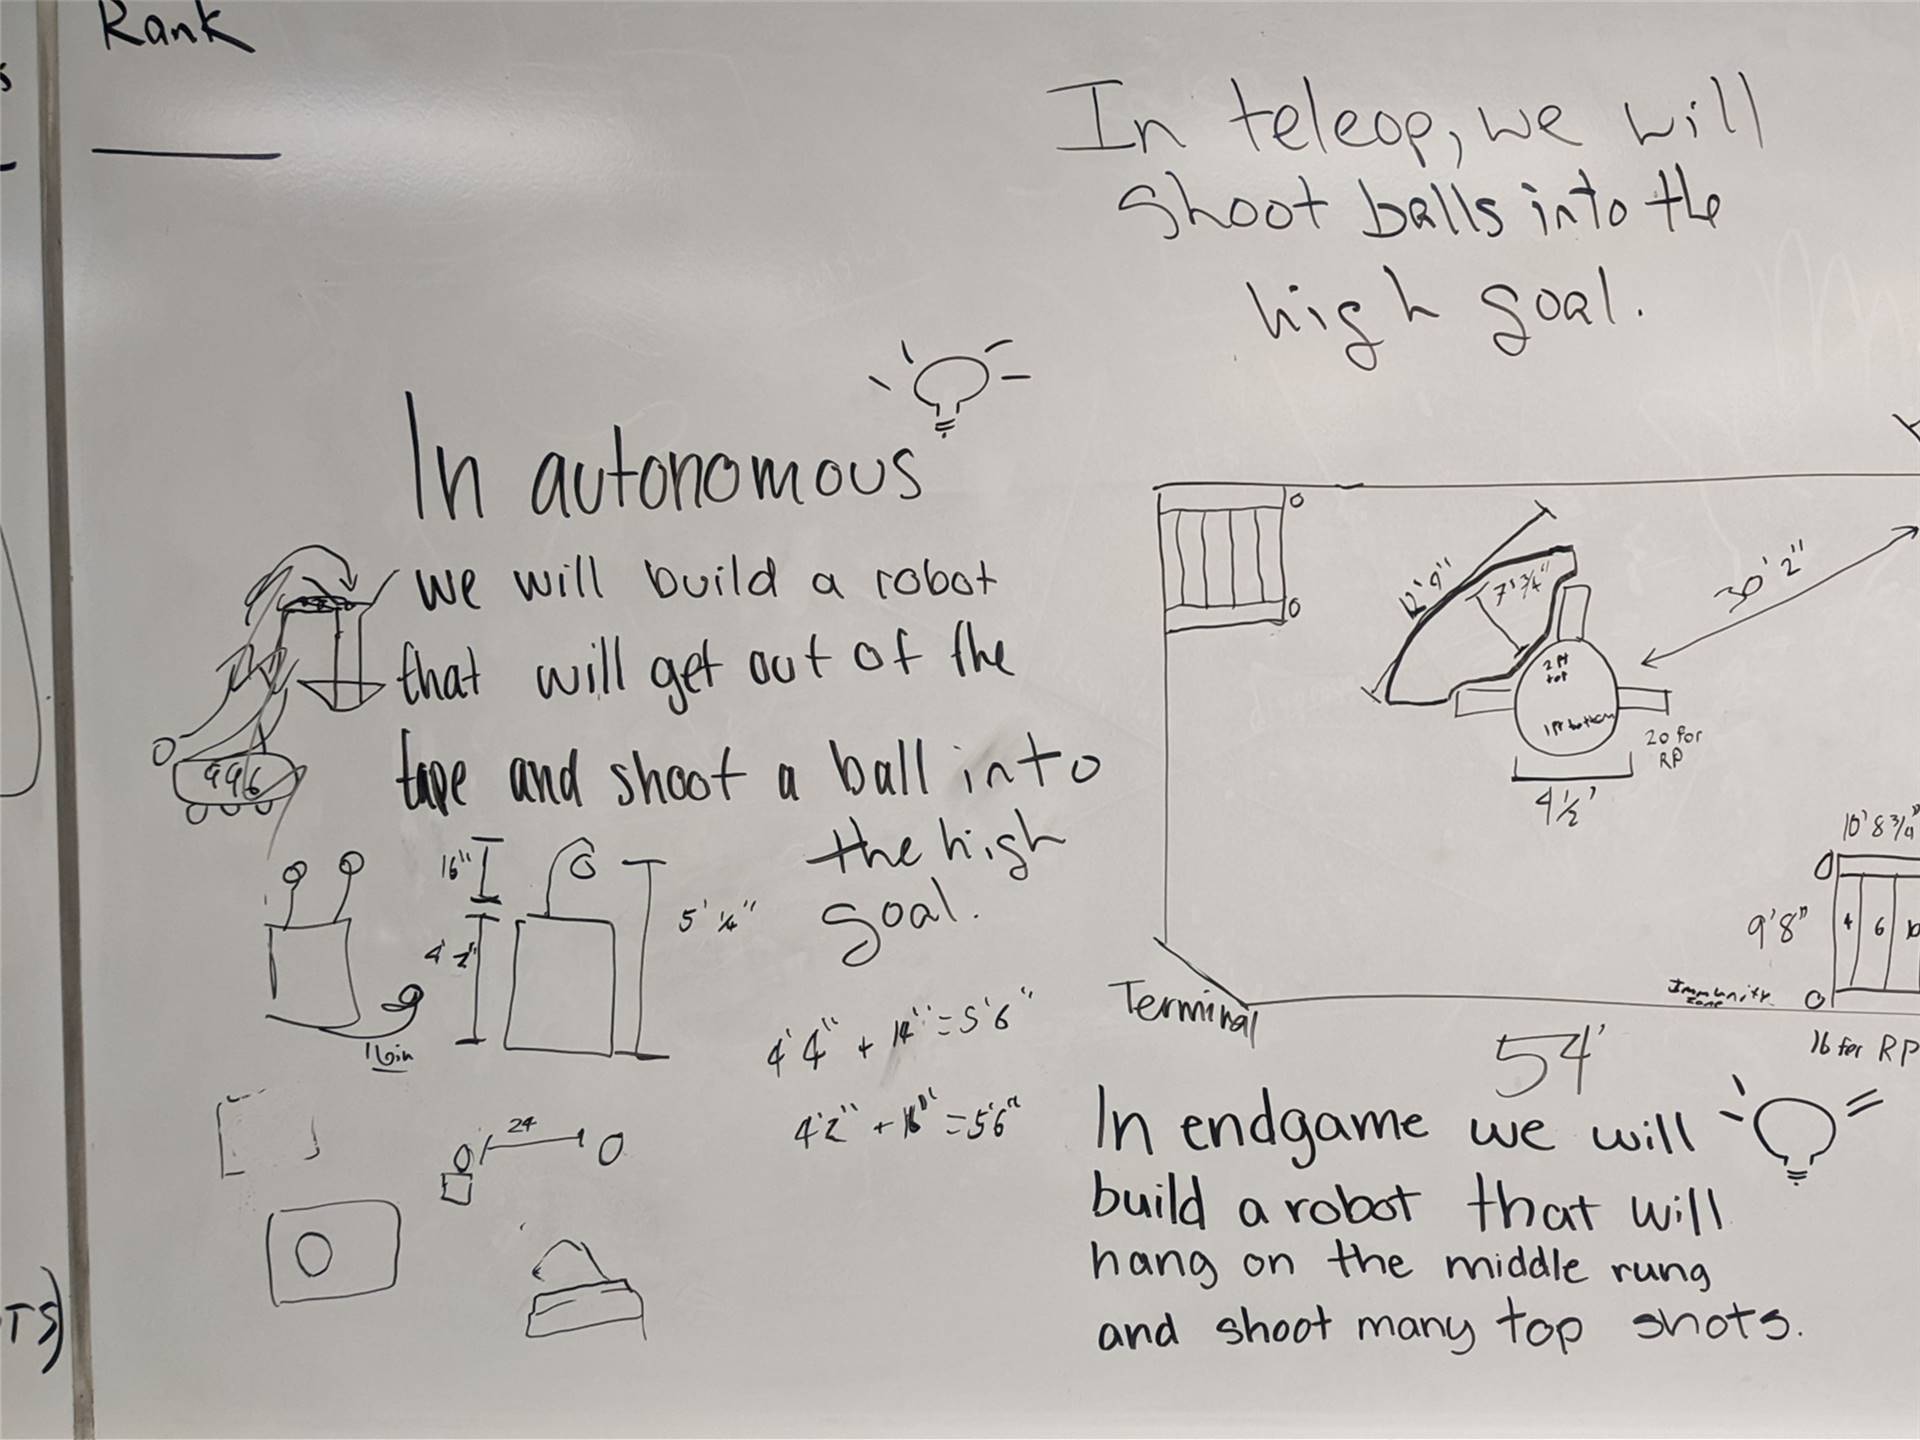 Rank
In teleop, we will
shoot balls into the
high goal.
In autonomous
we will build a robot
that will get out of the
tape and shoot a ball into
the high
goal.
996
16"
5' ¼"
16in
4'4" + 14" = 5'6"
4'2" + 16" = 5'6"
24
12'9"
7'¾"
30'2"
2 Pt
top
1 Pt bottom
20 for
RP
4½'
10'8¾"
9'8"
4 6 10
Immunity
zone
Terminal
54'
16 for RP
In endgame we will
build a robot that will
hang on the middle rung
and shoot many top shots.
TS)